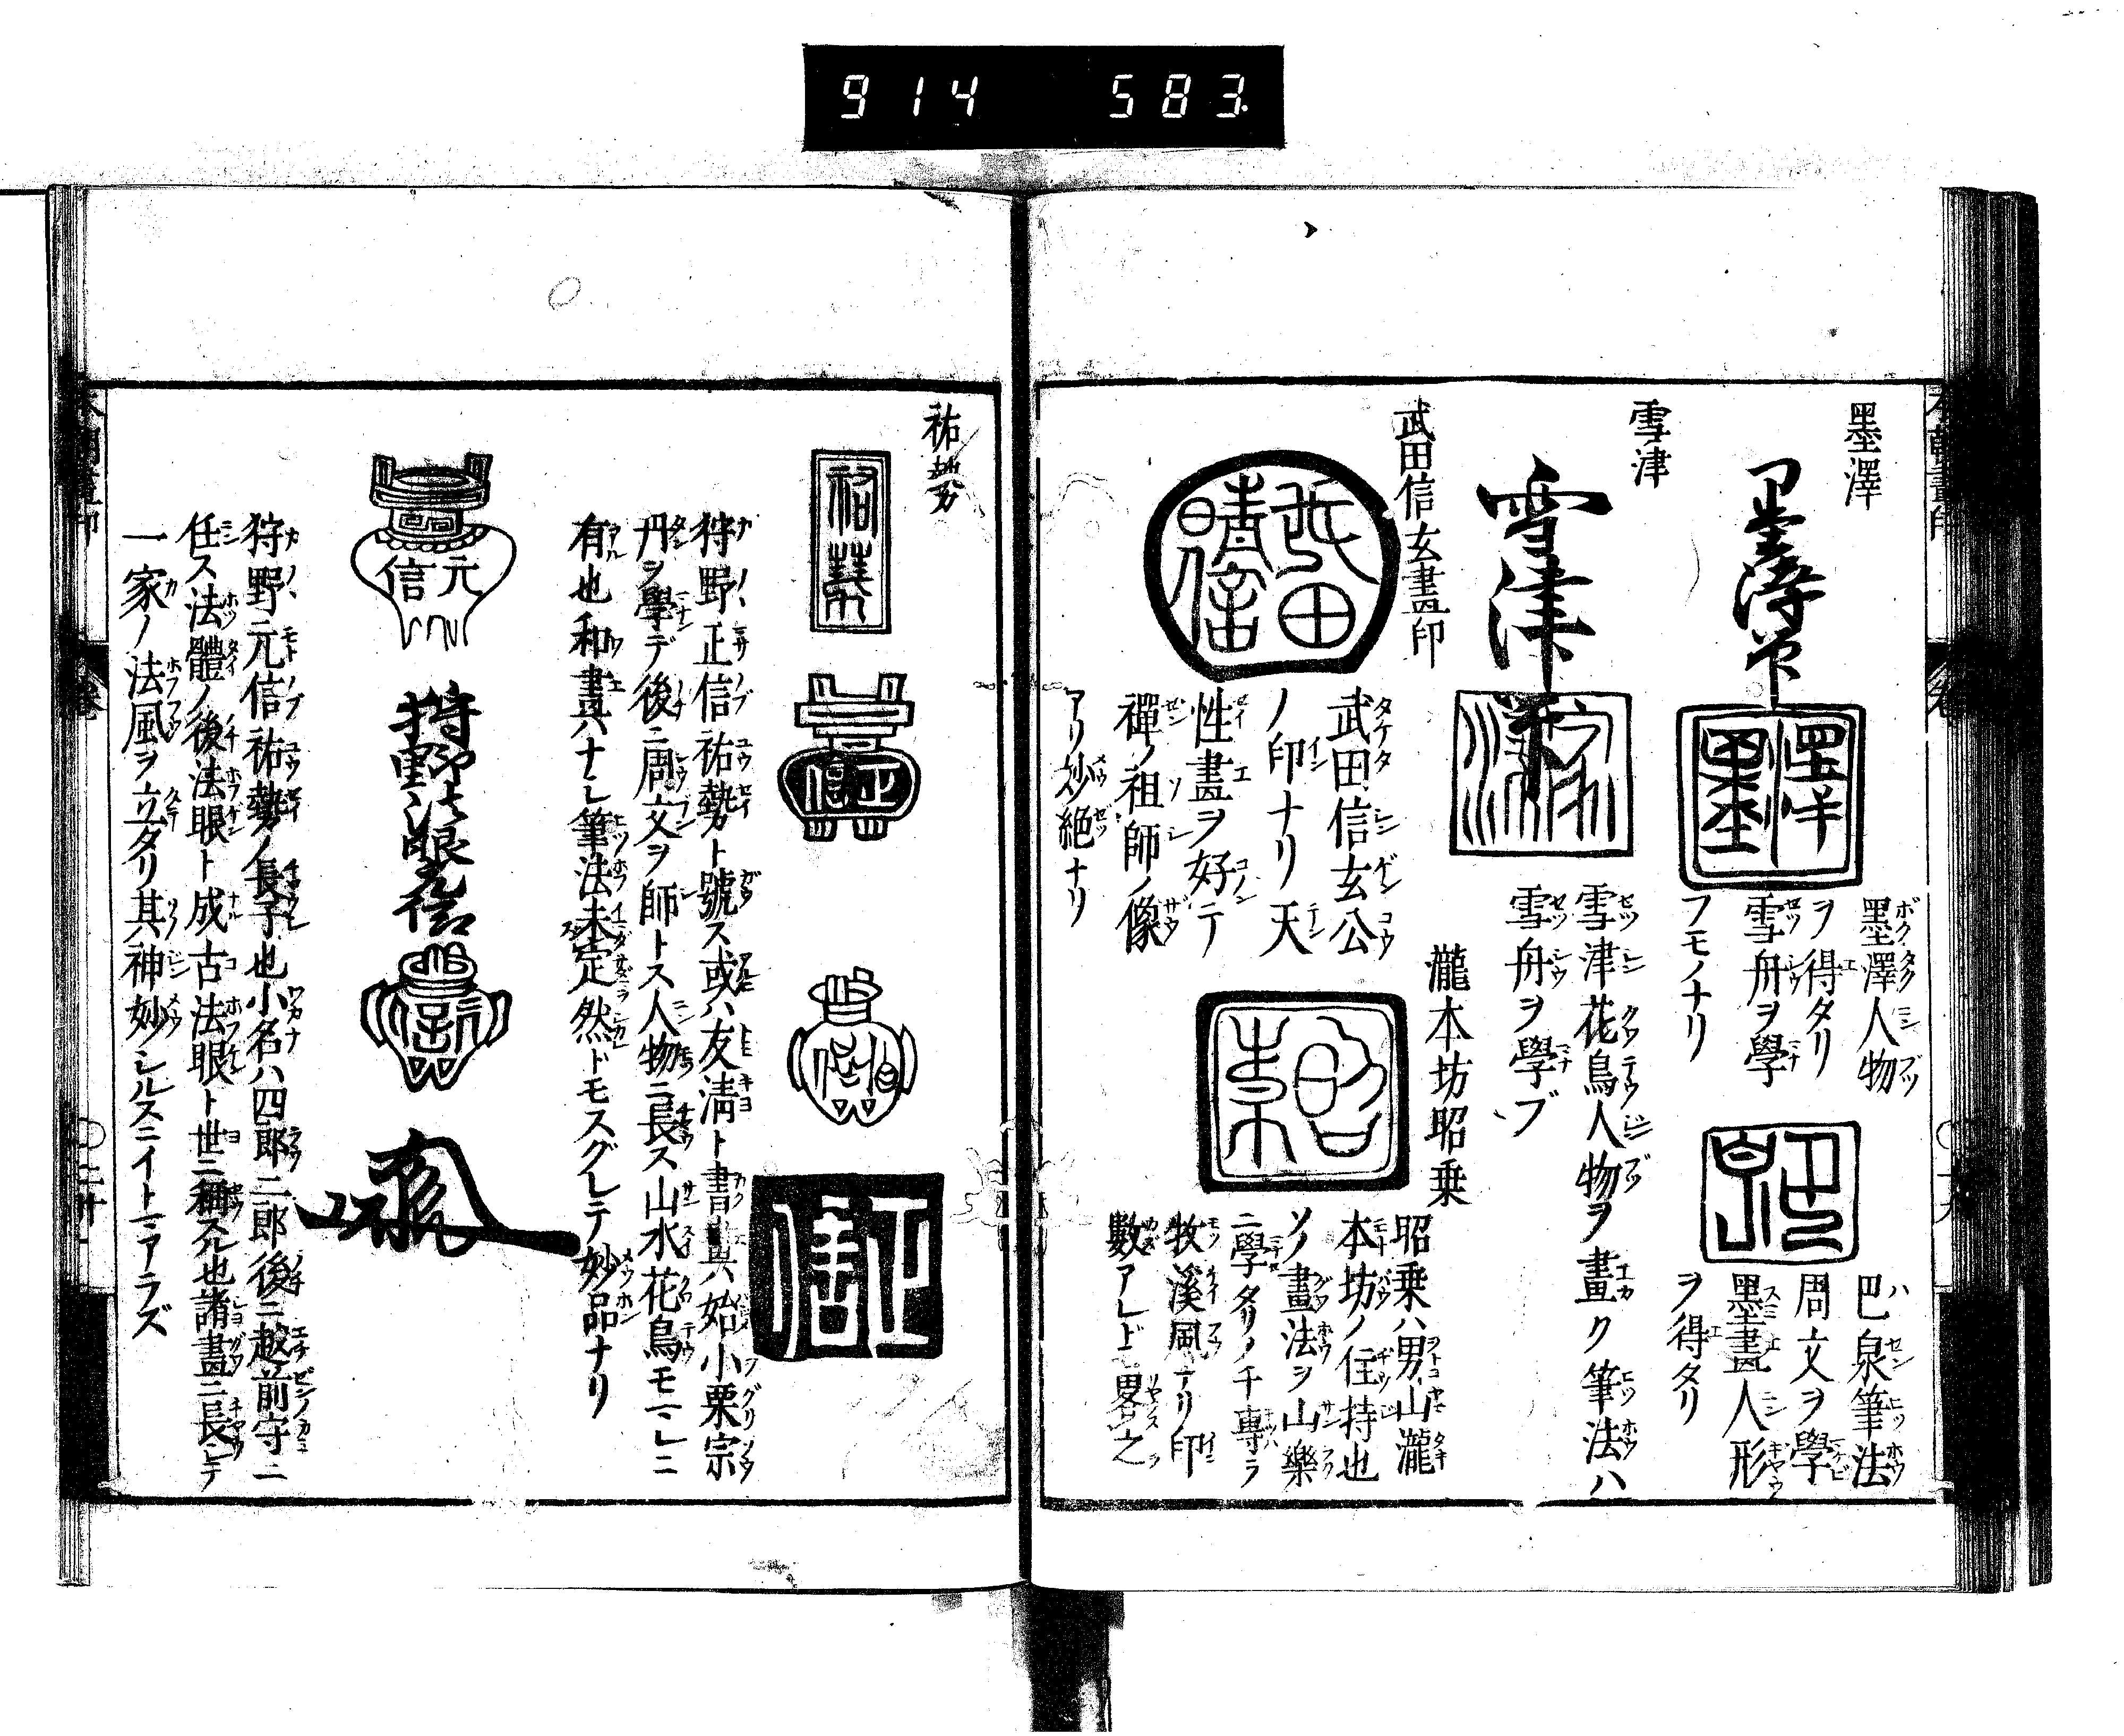 914 583
墨澤
墨澤筆
墨澤
墨澤人物
ヲ得タリ
雪舟ヲ學
フモノナリ
巴泉筆法
周文ヲ學
墨畫人形
ヲ得タリ
雪津
雪津
雪津花鳥人物ヲ畫ク筆法ハ
雪舟ヲ學ブ
武田信玄畫印
武田晴信
武田信玄公
ノ印ナリ天
性畫ヲ好テ
禪ノ祖師ノ像
アリ妙絶ナリ
瀧本坊昭乗
昭乗ハ男山瀧
本坊ノ住持也
ソノ畫法ヲ山樂
ニ學タリノチ專ラ
牧溪風ナリ印
數アレド畧之
祐勢
祐勢
正信
正信
狩野正信祐勢ト號ス或ハ友淸ト書與始小栗宗
丹ヲ學デ後ニ周文ヲ師トス人物ニ長ス山水花鳥モマレニ
有也和畫ハナシ筆法未定然ドモスグレテ妙品ナリ
元信
狩野法眼元信
狩野元信祐勢ノ長子也小名ハ四郎二郎後ニ越前守ニ
任ス法體ノ後法眼ト成古法眼ト世ニ稱スル也諸畫ニ長シテ
一家ノ法風ヲ立タリ其神妙シルスニイトマアラズ